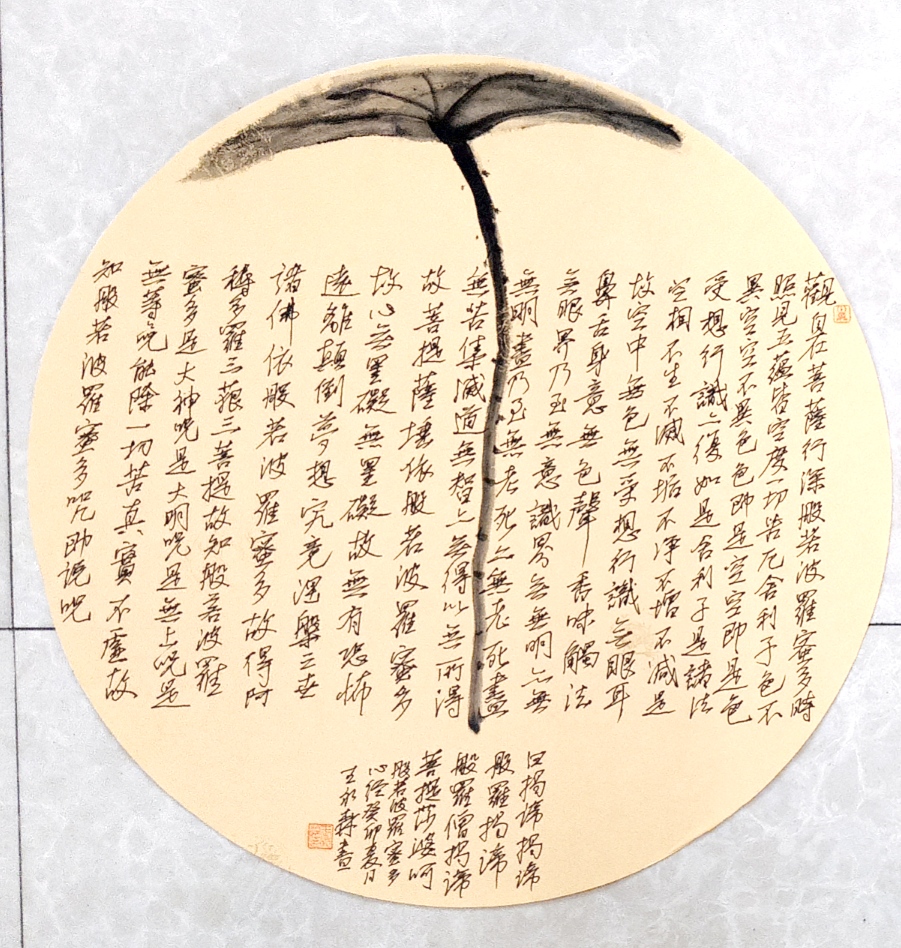 觀自在菩薩行深般若波羅蜜多時
照見五蘊皆空度一切苦厄舍利子色不
異空空不異色色即是空空即是色
受想行識亦復如是舍利子是諸法
空相不生不滅不垢不淨不增不減是
故空中無色無受想行識无眼耳
鼻舌身意無色聲香味觸法
无眼界乃至無意識界无無明亦無
無明盡乃至無老死亦無老死盡
無苦集滅道無智亦无得以无所得
故菩提薩埵依般若波羅蜜多
故心无罣礙無罣礙故無有恐怖
遠離顛倒夢想究竟涅槃三世
諸佛依般若波羅蜜多故得阿
耨多羅三藐三菩提故知般若波羅
蜜多是大神呪是大明呪是無上呪是
無等呪能除一切苦真實不虛故
知般若波羅蜜多呪即說呪
曰揭諦揭諦
般羅揭諦
般羅僧揭諦
菩提莎婆呵
般若波羅蜜多
心經癸卯夏月
王永森書